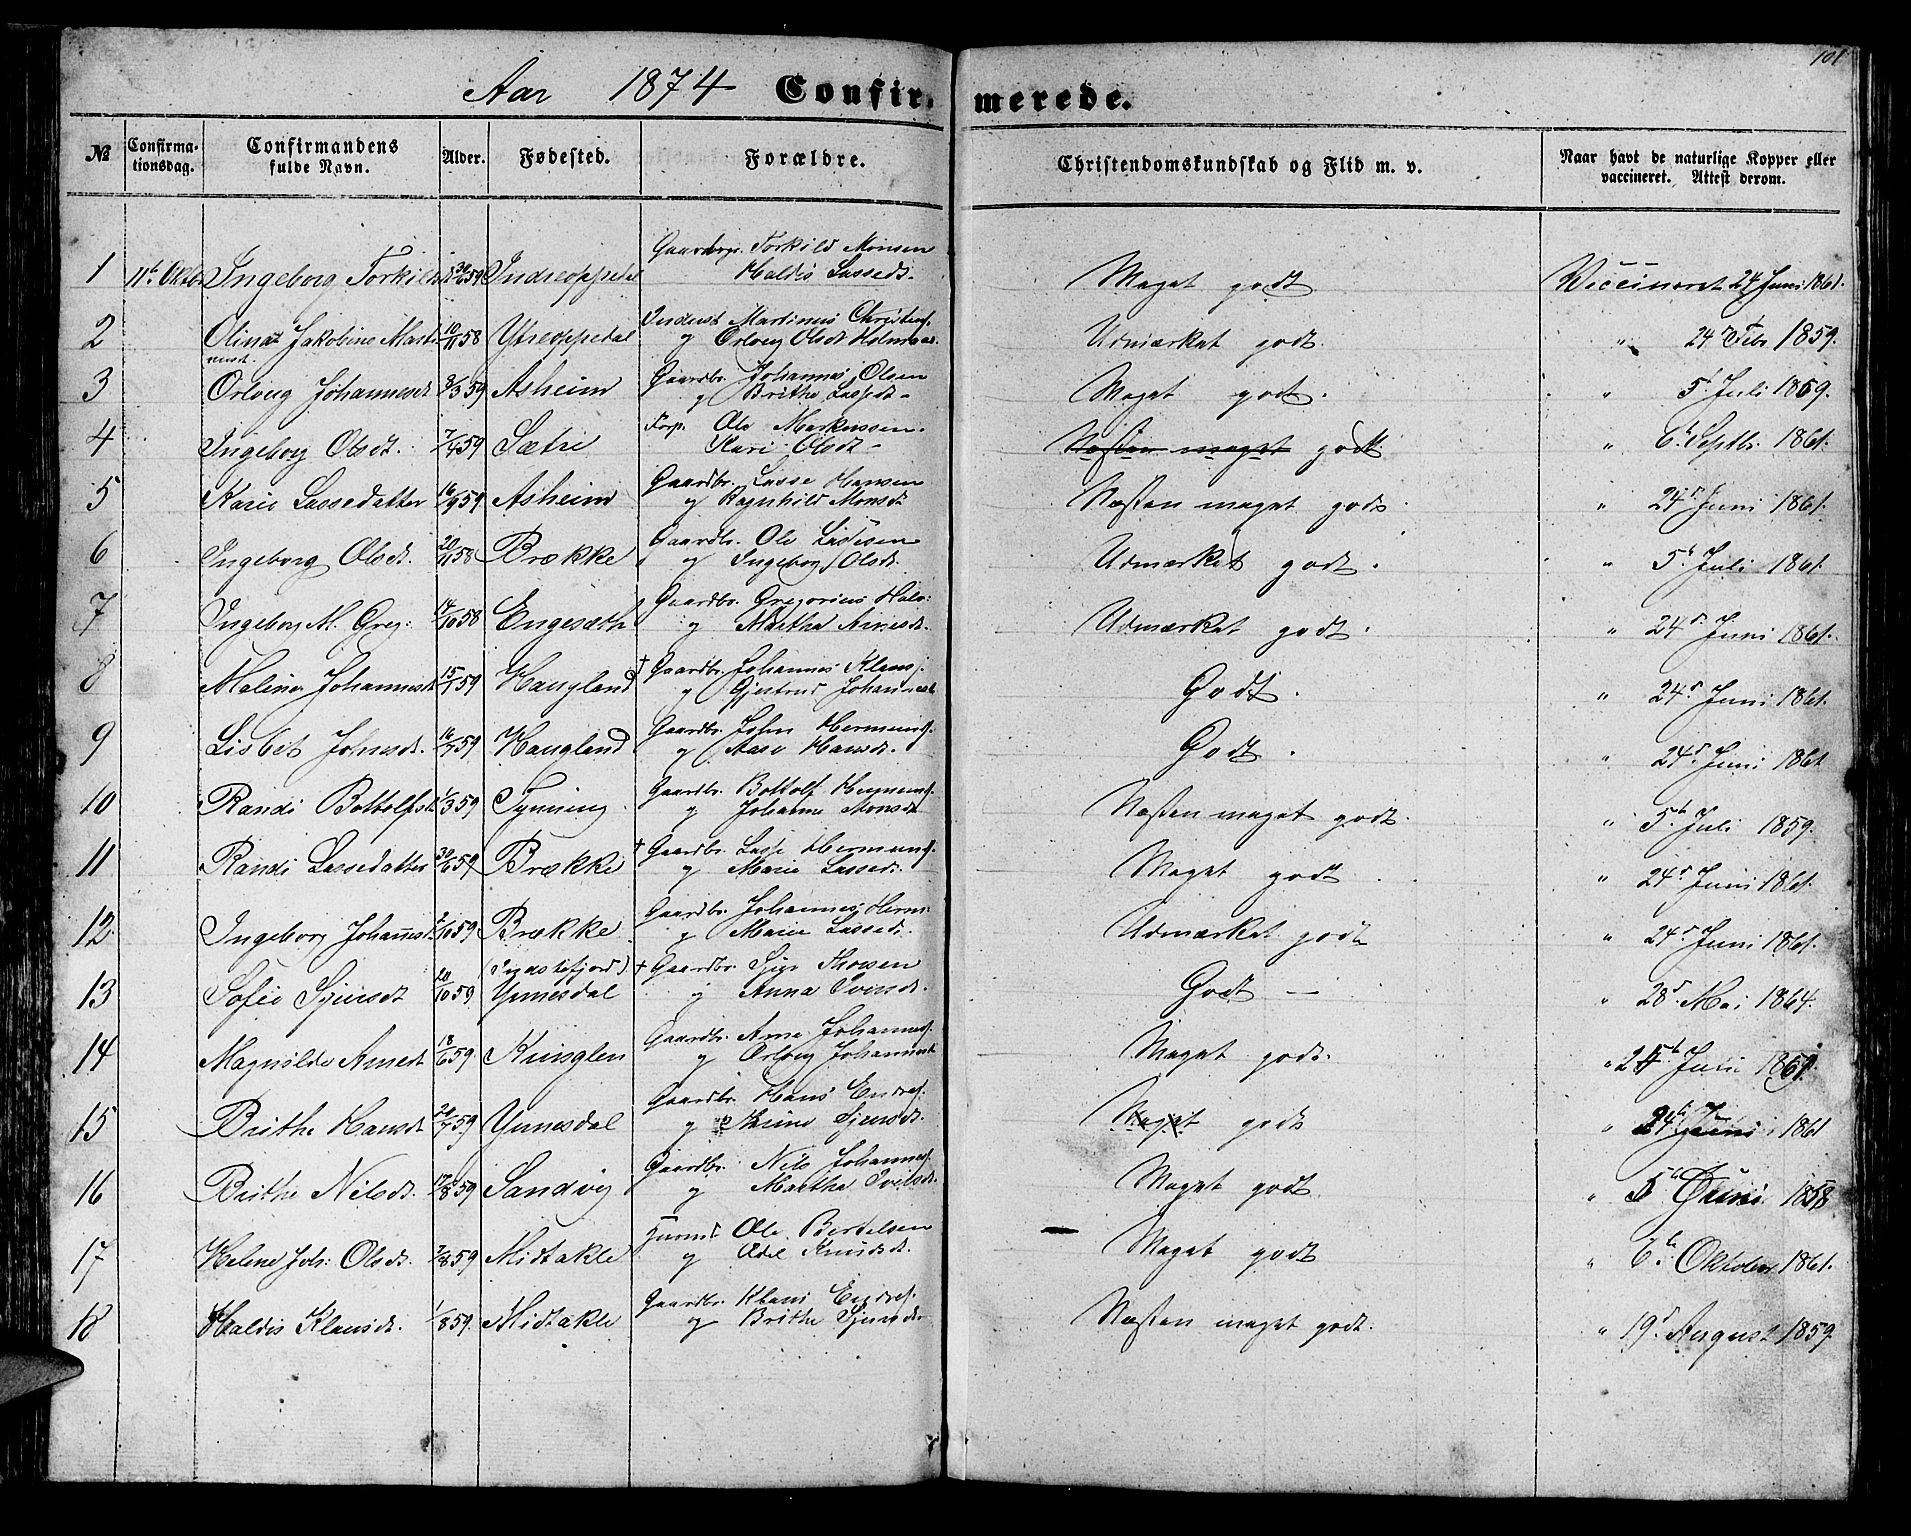 101
Aar 1874 Confir- merede.
№ Confirma-tionsdag. Confirmandens fulde Navn. Alder. Fødested. Forældre. Christendomskundskab og Flid m. v. Naar havt de naturlige Kopper eller vaccineret. Attest derom.
1 11te Oktbr Ingeborg Torkilds 30/6 59 Indreoppedal Gaardbrgr. Torkild Monsen Haldis Lassedt. Meget godt Vaccineret 24 Juni 1861.
2 Olina Jakobine Marti nusd. 10/11 58 Ytreoppedal Inderst Martinus Christens. og Orloug Olsdt Holmaas. Udmærket godt. " 24r Febr 1859.
3 Orloug Johannesdt 8/3 59 Asheim Gaardbr. Johannes Olsen og Brithe Lassedt. Meget godt. " 5t Juli 1859.
4 Ingeborg Olsdt. 7/4 59 Sætre Forp. Ole Markussen. Kari Olsdt Næsten meget godt " 6t Septbr. 1861.
5 Kari Lassedatter 16/9 59 Asheim Gaardbr. Lasse Hansen og Ragnhild Monsdt Næsten meget godt " 24r Juni 1861.
6 Ingeborg Olsdt. 20/11 58 Brække Gaardbr. Ole Lassesen og Ingeborg Olsdt. Udmærket godt. " 5t Juli 1861
7 Ingeborg M. Greg. 14/10 58 Engesæth Gaardbr. Gregorius Halv. og Martha Arnesdt. Udmærket godt. " 24r Juni 1861.
8 Maline Johannesdt 15/1 59 Haugland † Gaardbr. Johannes Klausf. og Gjertrud Johannesdt Godt. " 24r Juni 1861.
9 Lisbet Johnsdt. 16/7 59 Haugland Gaardbr. John Hermundf. og Kari Hansdt. Godt. " 24r Juni 1861
10 Randi Bottolfsdt 1/3 59 Tynning Gaardbr. Bottolf Hermundf. og Johanne Monsdt Næsten meget godt. " 5te Juli 1859.
11 Randi Lassedatter 30/6 59 Brække † Gaardbr. Lasse Hermundf. og Marie Lassedt. Meget godt. " 24r Juni 1861.
12. Ingeborg Johannesdt. 2/10 59 Brække Gaardbr. Johannes Herm. og Marie Lassedt. Udmærket godt " 24r Juni 1861.
13 Sofie Sjursdt 20/10 59 Ynnesdal † Gaardbr. Sjur og Anna Iversdt. Godt — " 28r Mai 1864.
14 Magnilde Arnesdt 18/6 59 Gaardbr. Arne Johannesf. og Orloug Johannesdt Meget godt. " Juli
15 Brithe Hansdt 20/7 59 Ynnesdal Gaardbr. Hans Endref. og Sjursdt. Meget godt " 24 Juni 1861
16 Brithe Nilsdt. 17/8 59 Sandvig Gaardbr. Nils Johannesf. og Martha Iversdt. Meget godt. " 5te Juni 1858
17 Helene Joh: Olsdt. 7/8 59 Midtakle Huusm Ole Bertelsen og Adel Knudsdt. Meget godt " 6te Oktober 1861.
18 Haldis Klausdt. 1/8 59. Midtakle Gaardbr. Klaus Endref. og Brithe Sjursdt. Næsten meget godt. " 19r August 1859.